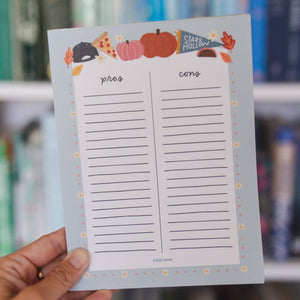 STARS
HOLLOW
pros cons